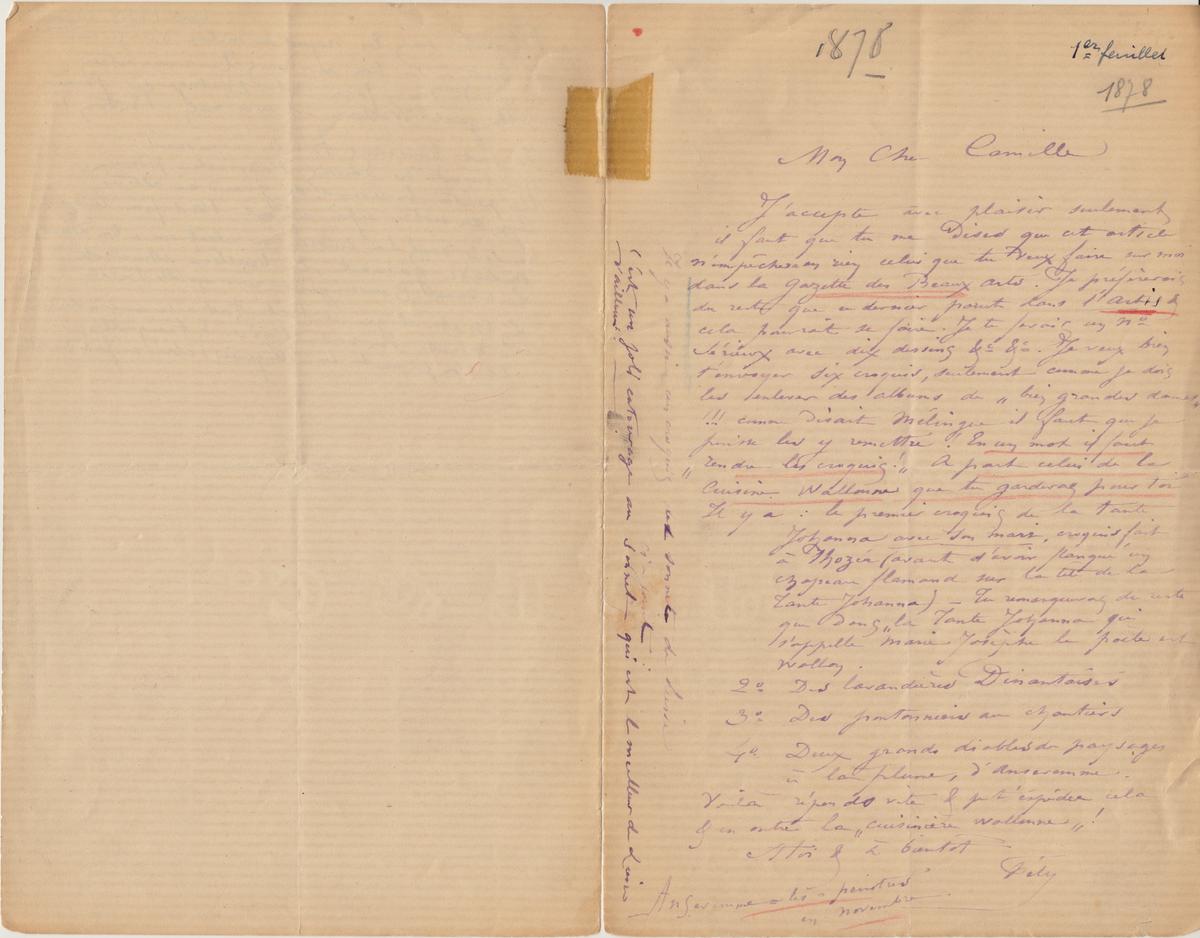 1878
1er feuillet
1878
Mon Cher Camille
J'accepte avec plaisir seulement
il faut que tu me Dises que cet article
n'empêchera en rien celui que tu veux faire sur moi
dans la gazette des Beaux arts. Je préfèrerais
du reste que ce dernier parut dans l'artiste
cela pourrait se faire. Je te ferais un No
Sérieux avec dix dessins &a &a. Je veux bien
t'envoyer six croquis, seulement comme je dois
les enlever des albums de „ bien grandes dames „
!!! comme Disait Mélingue il faut que je
puisse les y remettre ! En un mot il faut
„ rendre les croquis ! „ A part celui de la
Cuisine Wallonne que tu garderas pour toi
Il y a : le premier croquis de la tante
Johanna avec son mari, croquis fait
à Thozée (avant d'avoir flanqué un
chapeau flamand sur la tête de la
Tante Johanna) – Tu remarqueras du reste
que la Tante Johanna qui
s'appelle marie Josèphe le poete est
wallon.
2o Des lavandières Dinantaises
3o Des pontonniers au chantiers
4o Deux grands diables de paysages
à la plume, d'Anseremme.
Voilà réponds vite & je t'expédie cela
& en outre la „ cuisinière wallonne „ !
A toi & à bientôt
Fély
Anseremme - les - peintres
en novembre
Il y a aussi un croquis du sonnet de
C'est un joli entourage au Sonnet qui est le meilleur de
d'ailleurs !